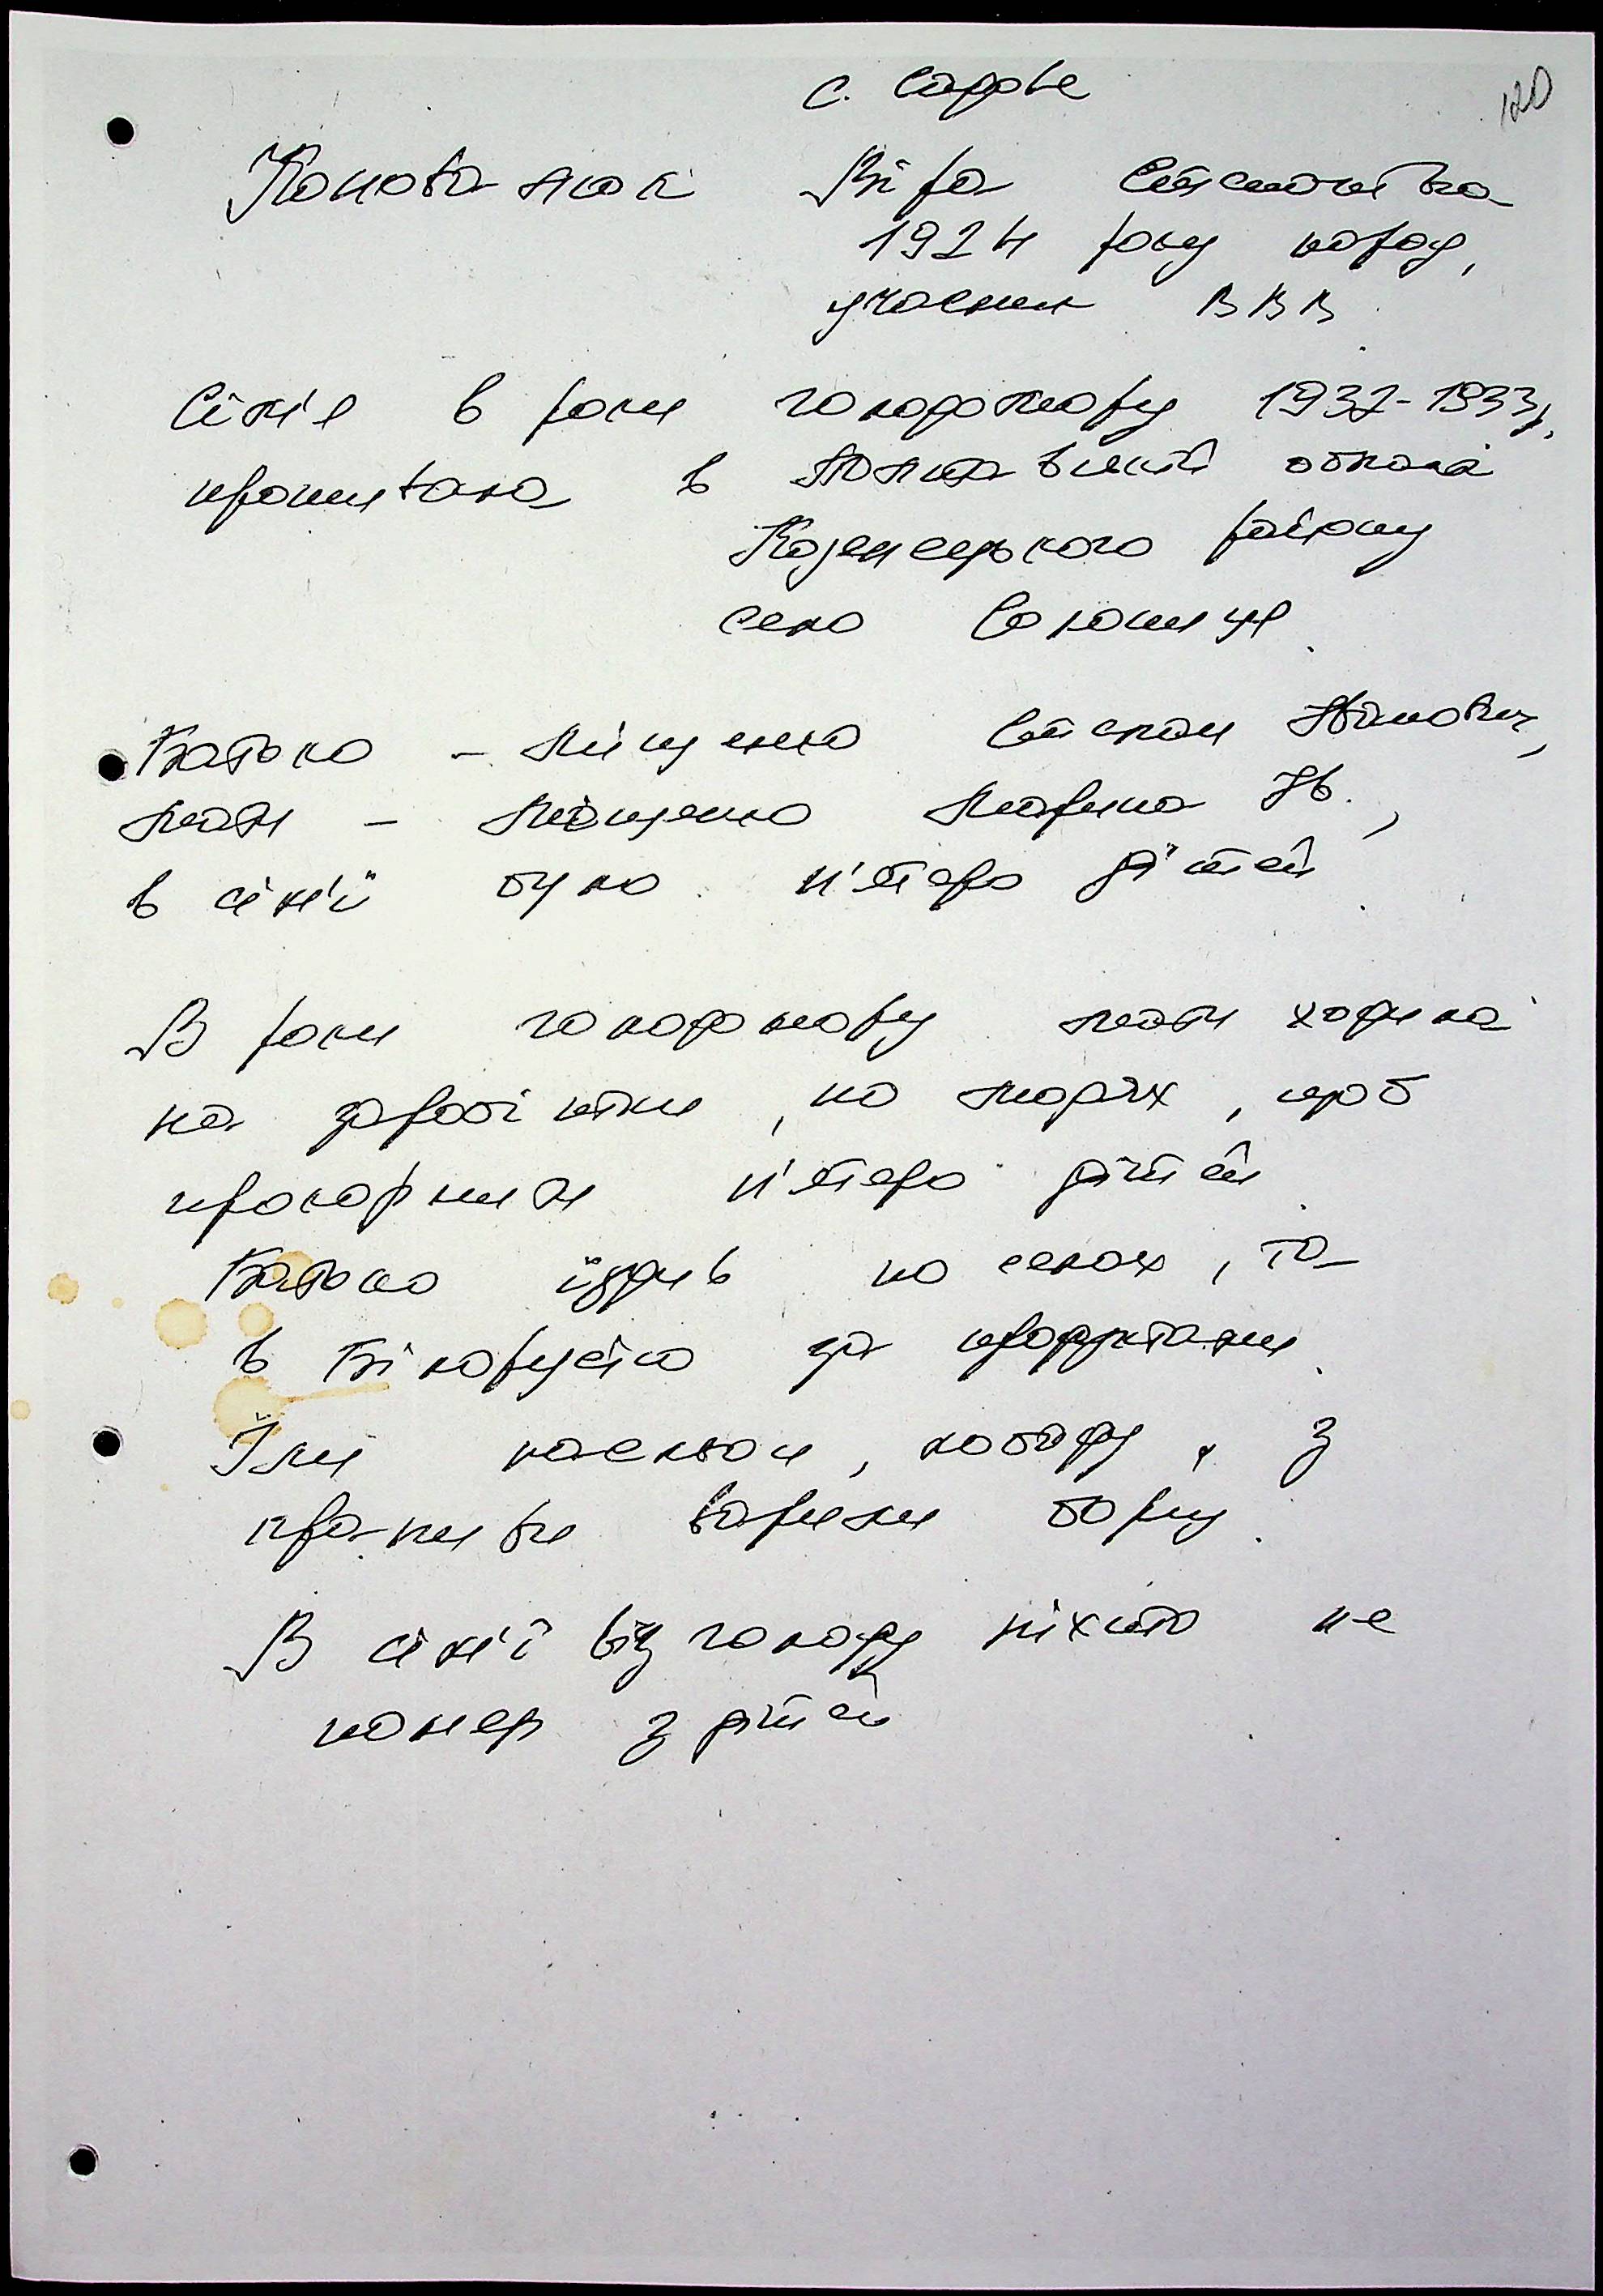 с. Садове
120
Коновалюк Віра Степанівна
1924 року народ,
учасник ВВВ.
Сім'я в роки голодомору 1932-1933р.
проживала в Полтавській області
Козельського району
село Солониця.
Батько - Міщенко Степан Іванович,
мати - Міщенко Марина Ів.,
в сім'ї було п'ятеро дітей.
В роки голодомору мати ходила
на заробітки, по людях, щоб
прокормити п'ятеро дітей.
Батько їздив по селах, та
в Білорусію за продуктами.
Їли касльон, лободу, з
кропиви варили борщ.
В сім'ї від голоду ніхто не
помер з дітей